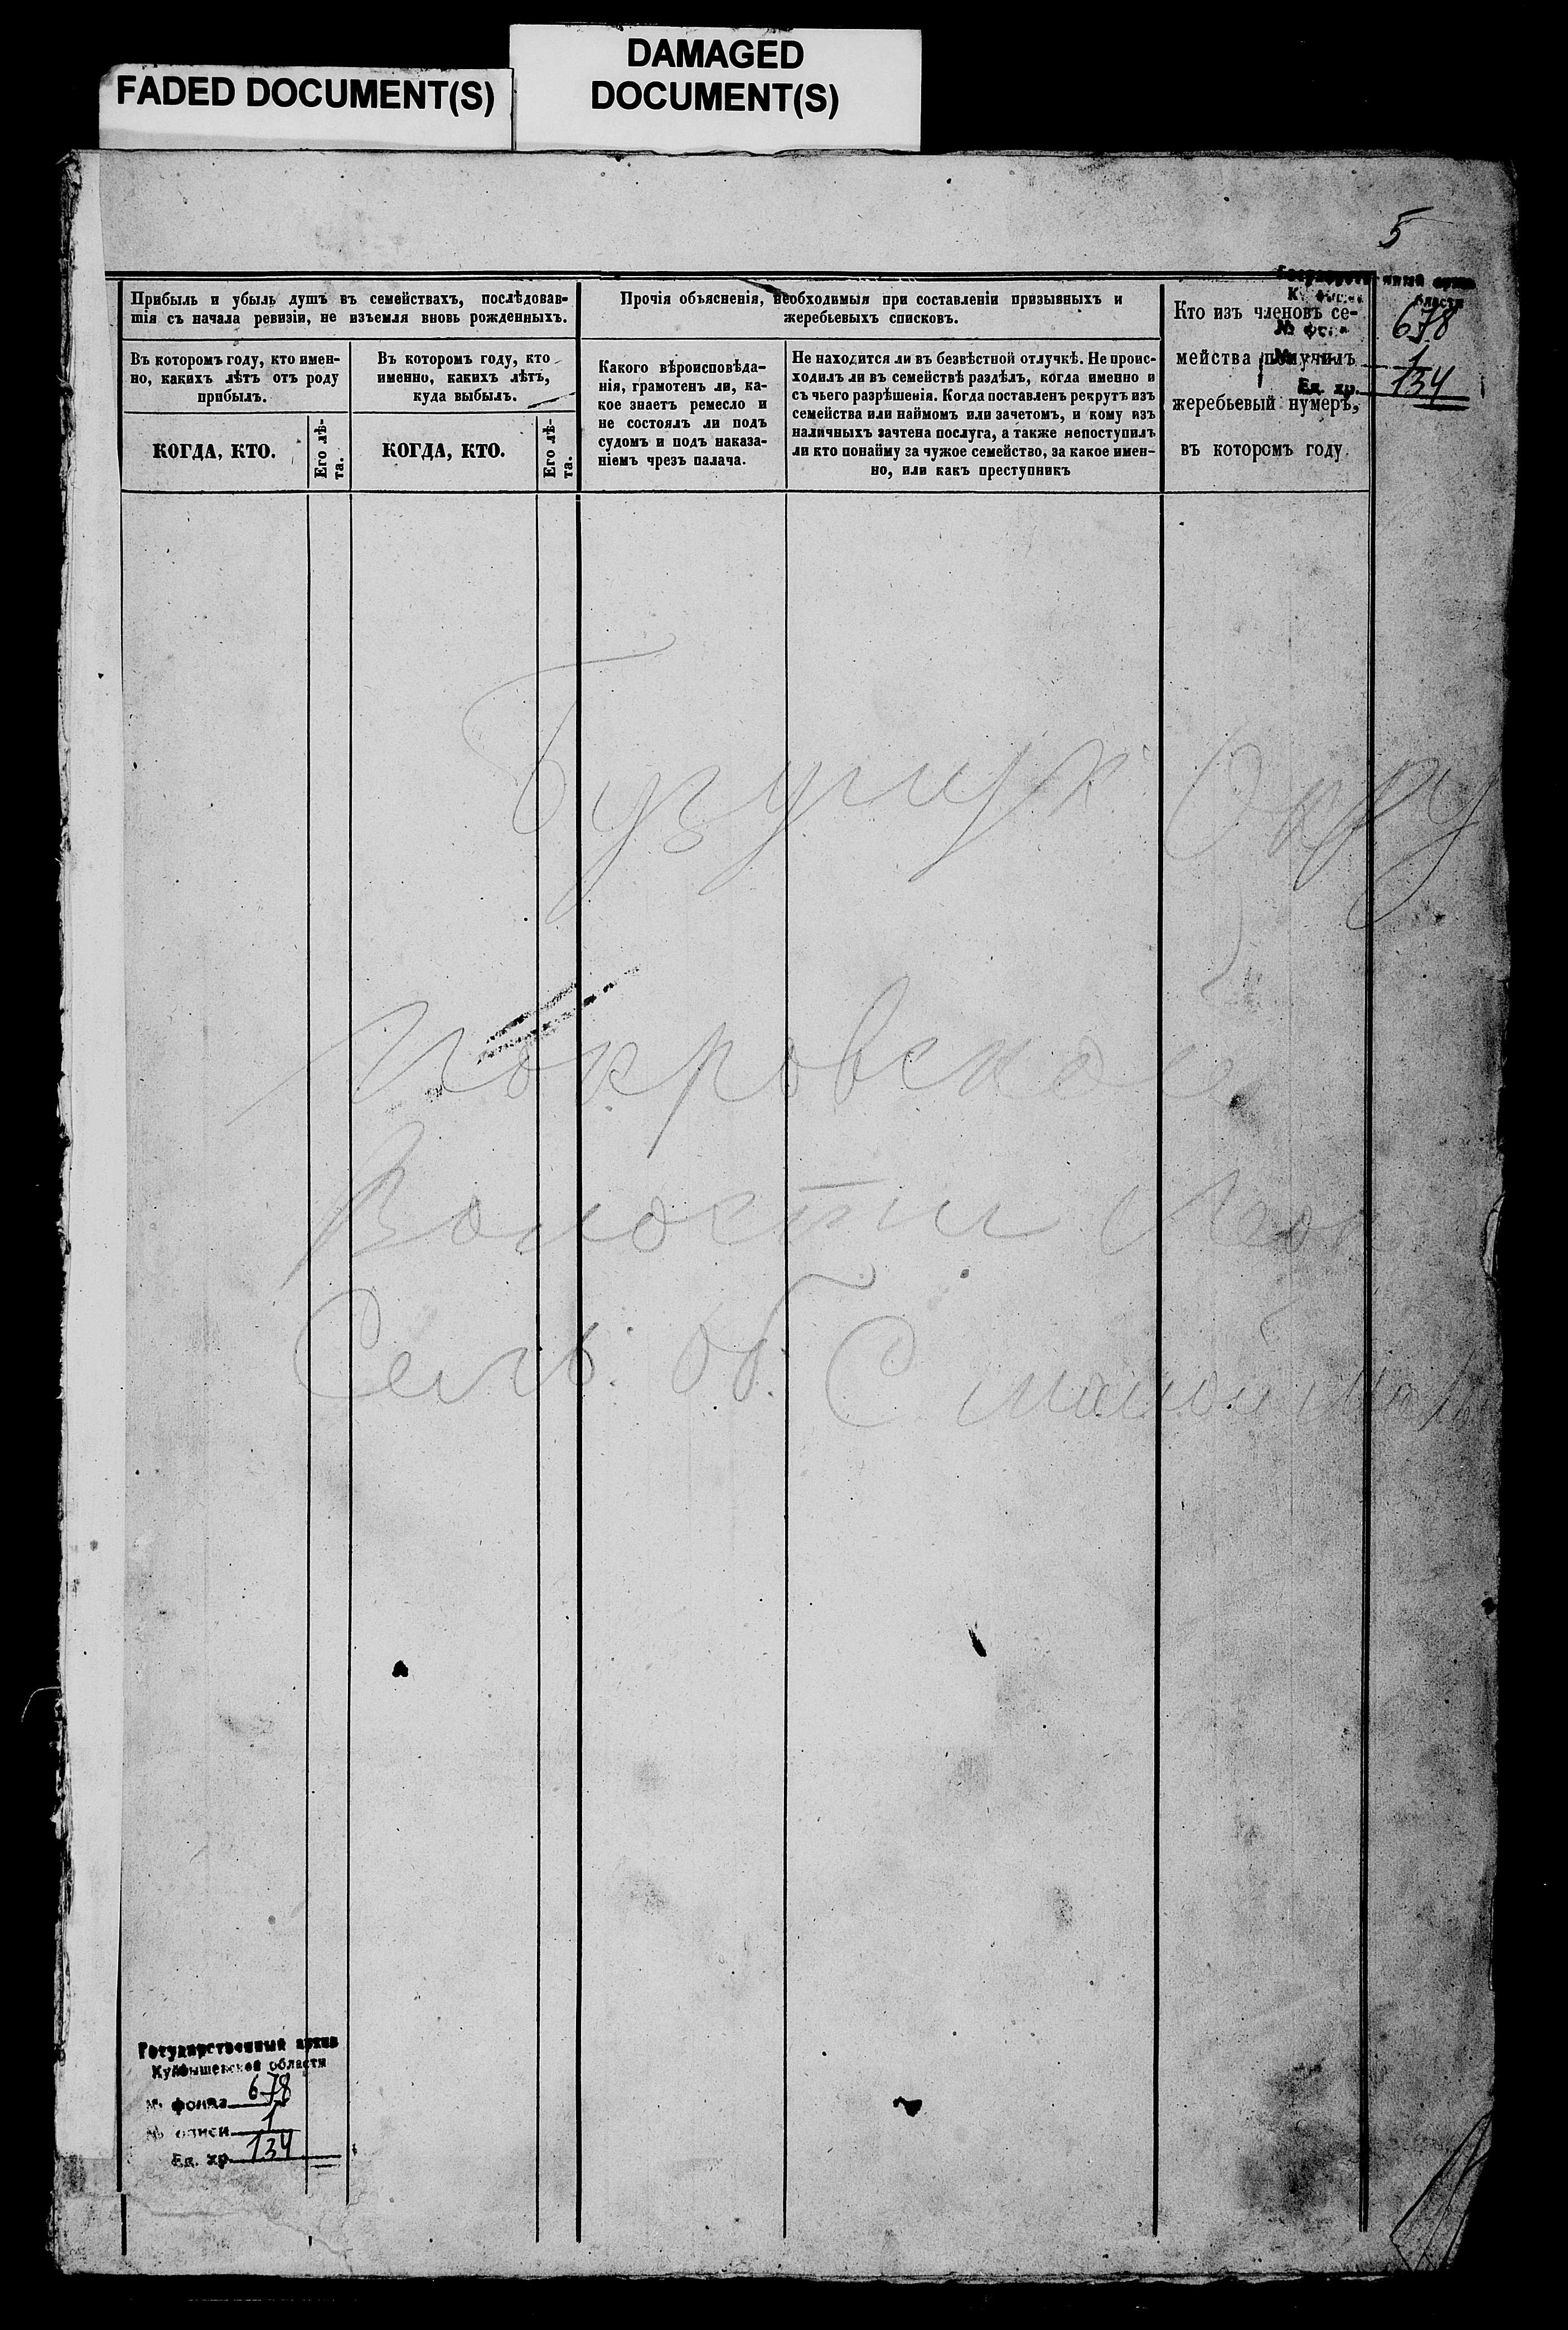 FADED DOCUMENT(S)
DAMAGED
DOCUMENT(S)
5
Прибыль и убыль душъ въ семействахъ, послѣдовав-
шія съ начала ревизіи, не изъемля вновь рожденныхъ.
Въ которомъ году, кто имен-
но, какихъ лѣтъ отъ роду
прибылъ.
Въ которомъ году, кто
именно, какихъ лѣтъ,
куда выбылъ.
КОГДА, КТО.
Его лѣ-
та.
КОГДА, КТО.
Его лѣ-
та.
Прочія объясненія, необходимыя при составленіи призывныхъ и
жеребьевыхъ списковъ.
Какого вѣроисповѣда-
нія, грамотенъ ли, ка-
кое знаетъ ремесло и
не состоялъ ли подъ
судомъ и подъ наказа-
ніемъ чрезъ палача.
Не находится ли въ безвѣстной отлучкѣ. Не проис-
ходилъ ли въ семействѣ раздѣлъ, когда именно и
съ чьего разрѣшенія. Когда поставленъ рекрутъ изъ
семейства или наймомъ или зачетомъ, и кому изъ
наличныхъ зачтена послуга, а также непоступилъ
ли кто понайму за чужое семейство, за какое имен-
но, или какъ преступникъ
Кто изъ членовъ се-
мейства получилъ
жеребьевый нумеръ,
въ которомъ году.
678
1
Ед. хр. 134
Покровской
Волости
Сель. об. С
Государственный архив
Куйбышевской области
№ фонда 678
№ описи 1
Ед. хр. 134